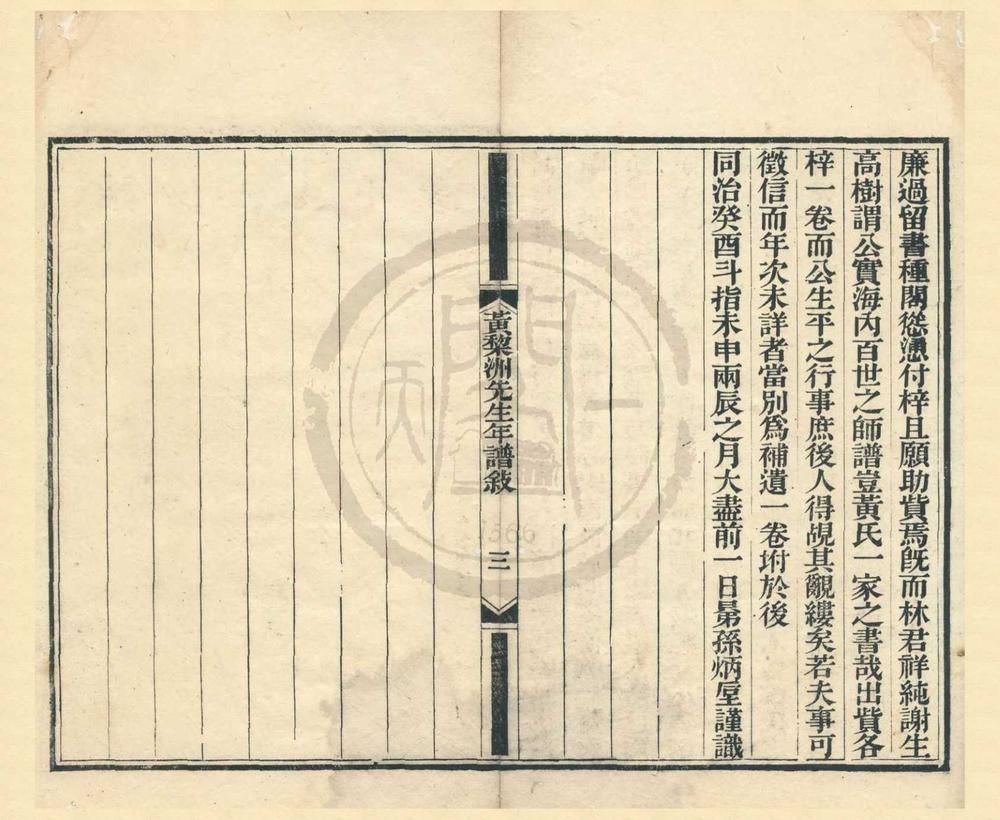 廉過留書種閣慫慂付梓且願助貲焉旣而林君祥純謝生
高樹謂公實海內百世之師譜豈黃氏一家之書哉出貲各
梓一卷而公生平之行事庶後人得覘其覼縷矣若夫事可
徵信而年次未詳者當別爲補遺一卷坿於後
同治癸酉斗指未申兩辰之月大盡前一日㬅孫炳垕謹識
黃黎洲先生年譜敍
三
天一閣
1566